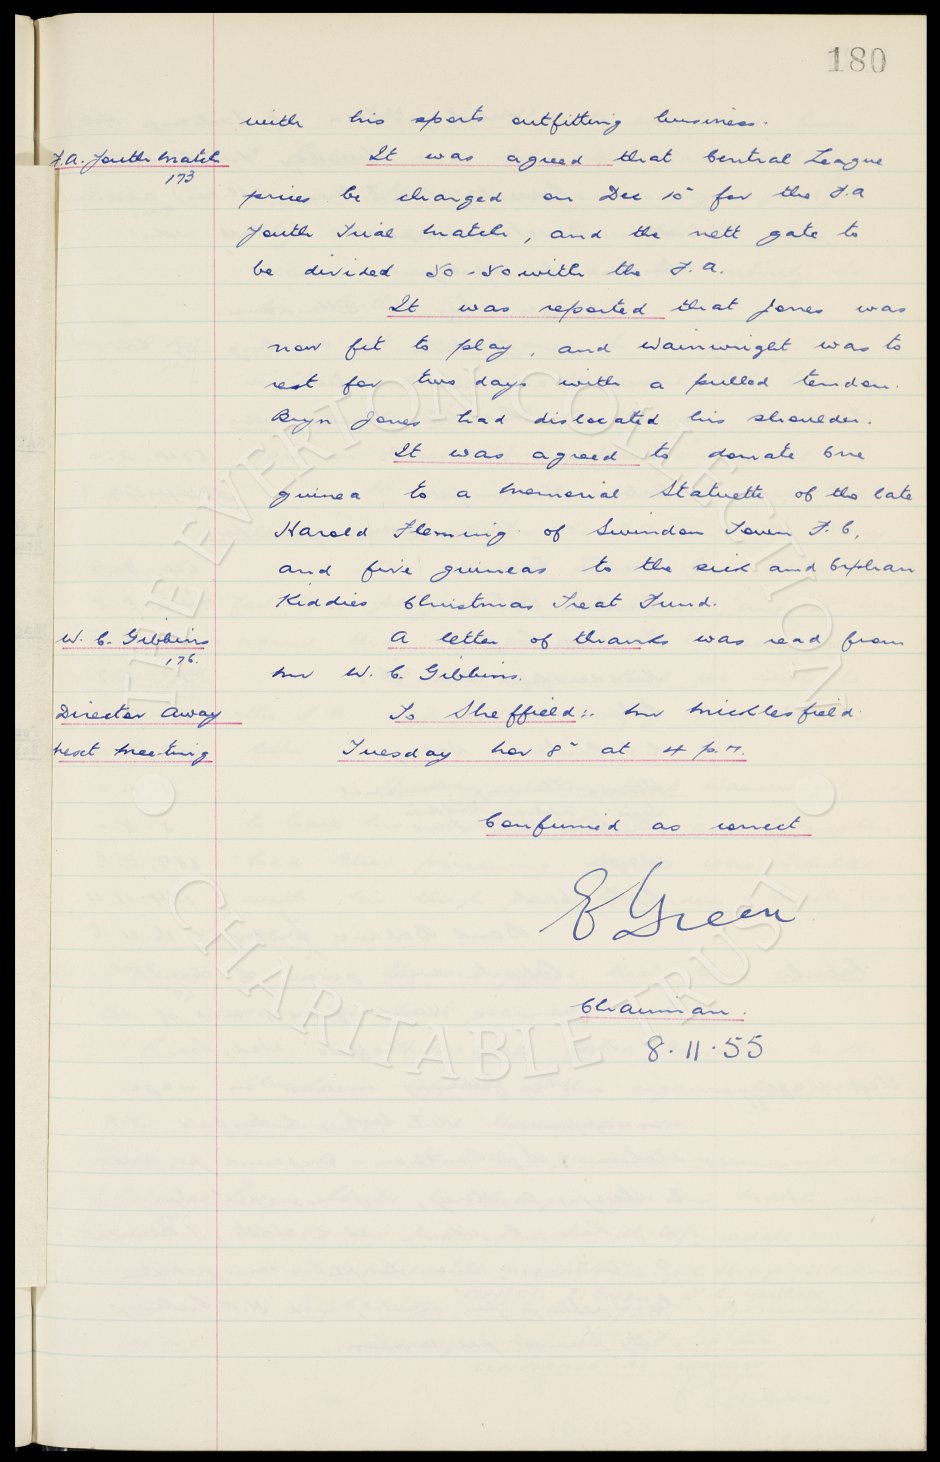 180
with his sports outfitting business.
F.A. Youth Match
It was agreed that Central League
173
prices be charged on Dec 10 for the F.A
Youth Trial Match, and the nett gate to
be divided 50-50 with the F.A.
It was reported that Jones was
now fit to play, and Wainwright was to
rest for two days with a pulled tendon.
Bryn Jones had dislocated his shoulder.
It was agreed to donate One
guinea to a Memorial Statuette of the late
Harold Fleming of Swindon Town F.C,
and five guineas to the sick and Orphan
Kiddies Christmas Treat Fund.
W. C. Gibbins
A letter of thanks was read from
176.
Mr W. C. Gibbins.
Director Away
To Sheffield:. Mr Micklesfield
Next Meeting
Tuesday Nov 8" at 4 p.m.
Confirmed as correct
E Green
Chairman.
8.11.55
THE EVERTON COLLECTION
CHARITABLE TRUST